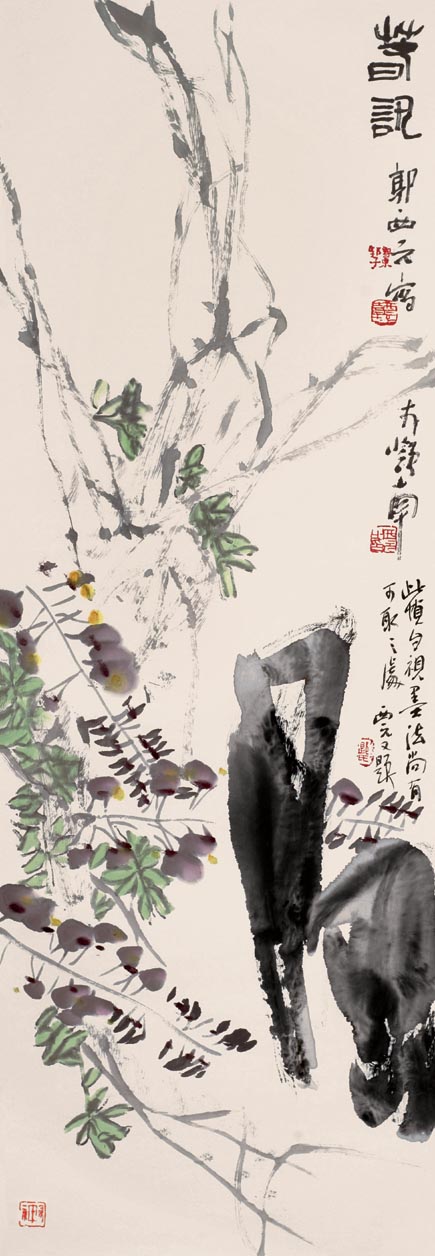 春訊
郭西元寫
於嶺南
此幀自視墨法尚有
可取之處 西元又題